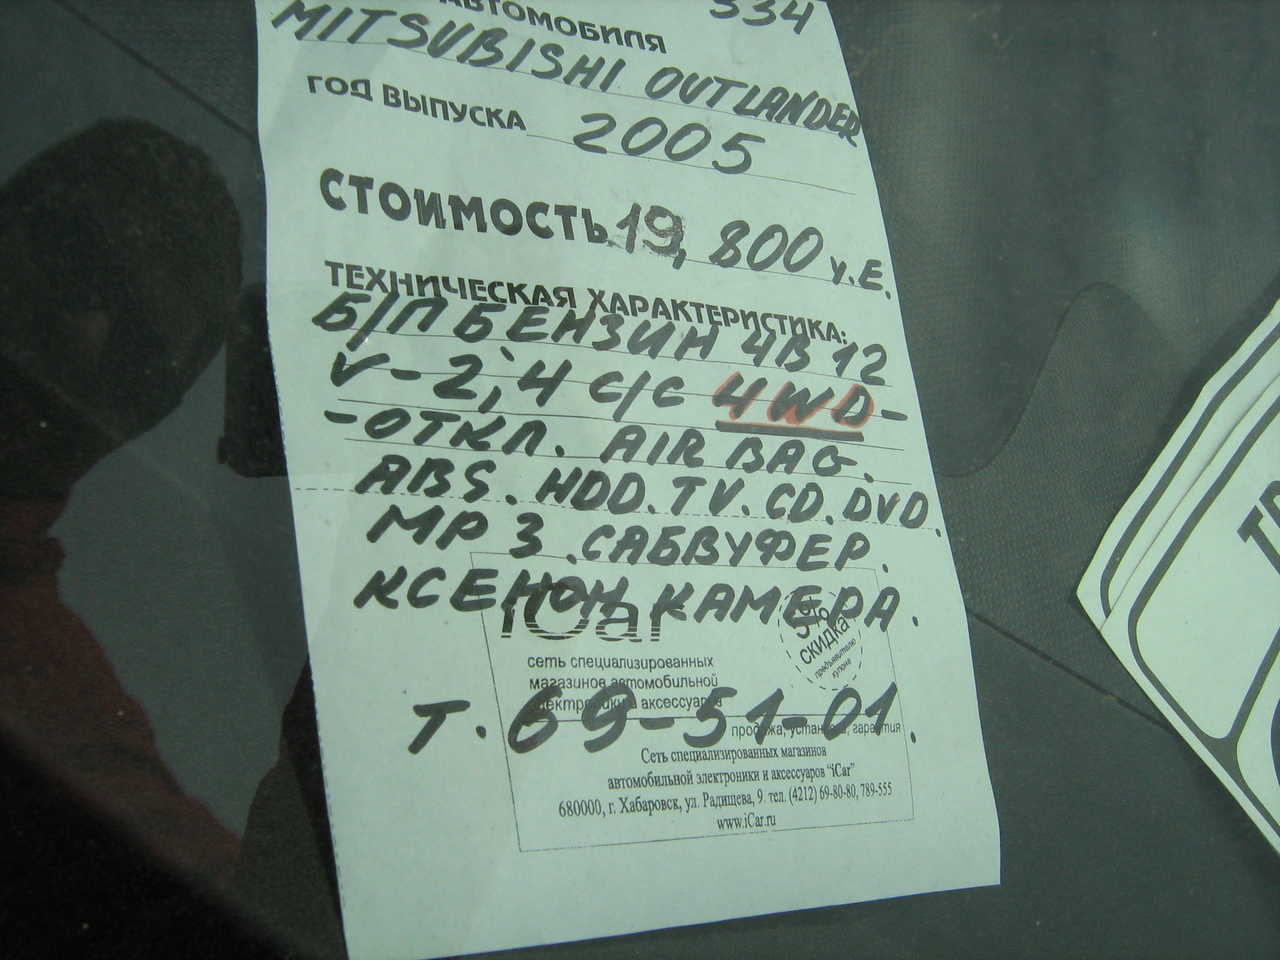 334
АВТОМОБИЛЯ
MITSUBISHI OUTLANDER
ГОД ВЫПУСКА 2005
СТОИМОСТЬ 19,800 у.Е.
ТЕХНИЧЕСКАЯ ХАРАКТЕРИСТИКА:
Б/П БЕНЗИН 4В12
V-2,4 С/С 4WD-
-ОТКЛ. AIR BAG.
ABS. HDD. TV. CD. DVD.
MP 3. САБВУФЕР.
КСЕНОН КАМЕРА.
iCar
5%
СКИДКА
предъявителю
купона
сеть специализированных
магазинов автомобильной
электроники и аксессуаров
т. 69-51-01.
продажа, установка, гарантия
Сеть специализированных магазинов
автомобильной электроники и аксессуаров "iCar"
680000, г. Хабаровск, ул. Радищева, 9. тел. (4212) 69-80-80, 789-555
www.iCar.ru